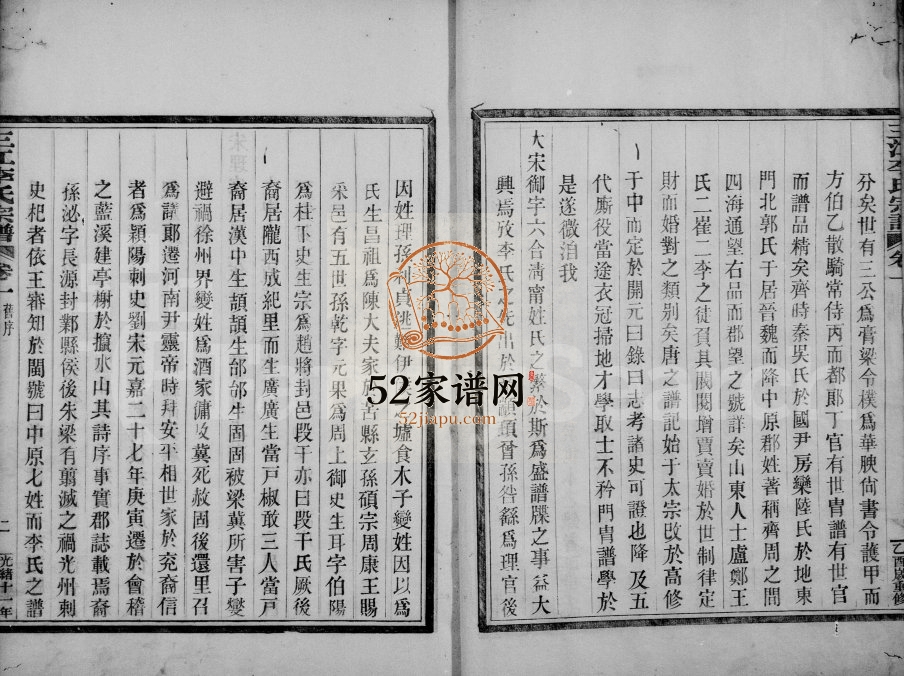 三江李氏宗譜 卷一
乙酉歲重修
分矣世有三公為膏粱令樸為華腴尙書令護甲而
方伯乙散騎常侍丙而都郞丁官有世冑譜有世官
而譜品精矣齊時秦吳氏於國尹房欒陸氏於地東
門北郭氏于居晉魏而降中原郡姓著稱齊周之間
四海通望右品而郡望之號詳矣山東人士盧鄭王
氏二崔二李之徒負其閥閱增賈賣婚於世制律定
財而婚對之類别矣唐之譜記始于太宗改於高修
于中而定於開元曰錄曰志考諸史可證也降及五
代廝役當途衣冠掃地才學取士不矜門冑譜學於
是遂微洎我
大宋御宇六合淸甯姓氏之繁於斯為盛譜牒之事益大
興焉攷李氏之先出於顓頊晉孫咎繇為理官後
因姓理孫利貞逃難伊 墟食木子變姓因以為
氏生昌祖為陳大夫家於苦縣玄孫碩宗周康王賜
采邑有五世孫乾字元果為周上御史生耳字伯陽
為柱下史生宗為趙將封邑段干亦曰段干氏厥後
裔居隴西成紀里而生廣廣生當戸椒敢三人當戸
裔居漢中生頡頡生郃郃生固固被梁冀所害子燮
避禍徐州界變姓為酒家傭攻冀死赦固後還里召
為議郞遷河南尹靈帝時拜安平相世家於兖裔信
者為潁陽刺史劉宋元嘉二十七年庚寅遷於會稽
之藍溪建亭榭於攬水山其詩序事實郡誌載焉裔
孫泌字長源封鄴縣侯後朱梁有翦滅之禍光州刺
史𣏌者依王審知於閩號曰中原七姓而李氏之譜
三江李氏宗譜 卷一 舊序
二
光緒十一年
52家谱网
52jiapu.com